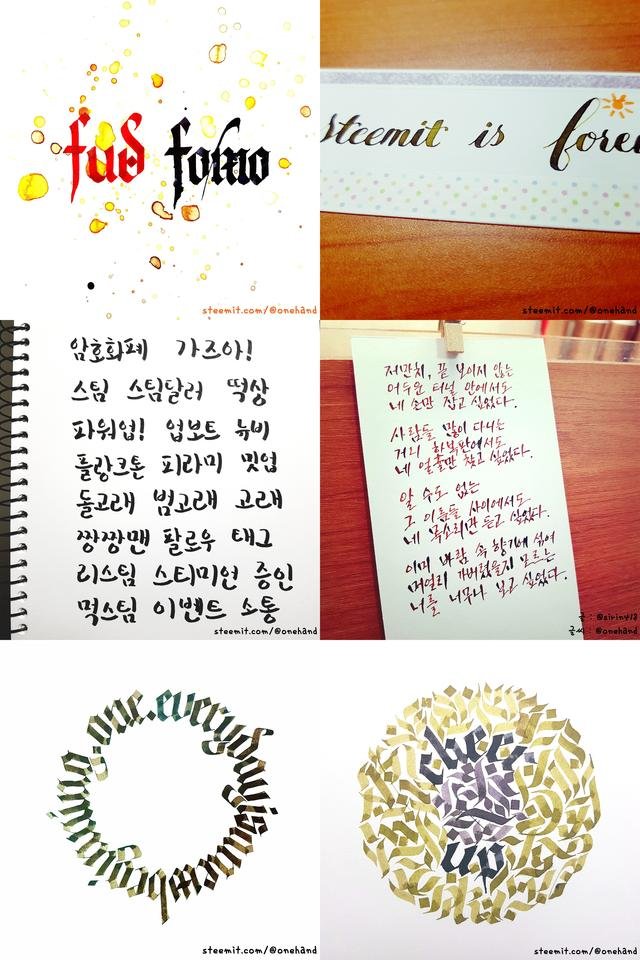 fud fomo
steemit.com/@onehand
steemit is forev
steemit.com/@onehand
암호화폐 가즈아!
스팀 스팀달러 떡상
파워업! 업보트 뉴비
플랑크톤 피라미 밋업
돌고래 범고래 고래
짱짱맨 팔로우 태그
리스팀 스티미언 증인
먹스팀 이벤트 소통
steemit.com/@onehand
저만치, 끝 보이지 않는
어두운 터널 안에서도
네 손만 잡고 싶었다.
사람들 많이 다니는
거리 한복판에서도
네 얼굴만 찾고 싶었다.
알 수도 없는
그 이름들 사이에서도
네 목소리만 듣고 싶었다.
이미 바람 속 향기에 섞여
멀리 가버렸을지 모르는
너를 너무나 보고 싶었다.
글 : @siriny18
글씨 : @onehand
every day is a new beginning
steemit.com/@onehand
cheer
up
steemit.com/@onehand